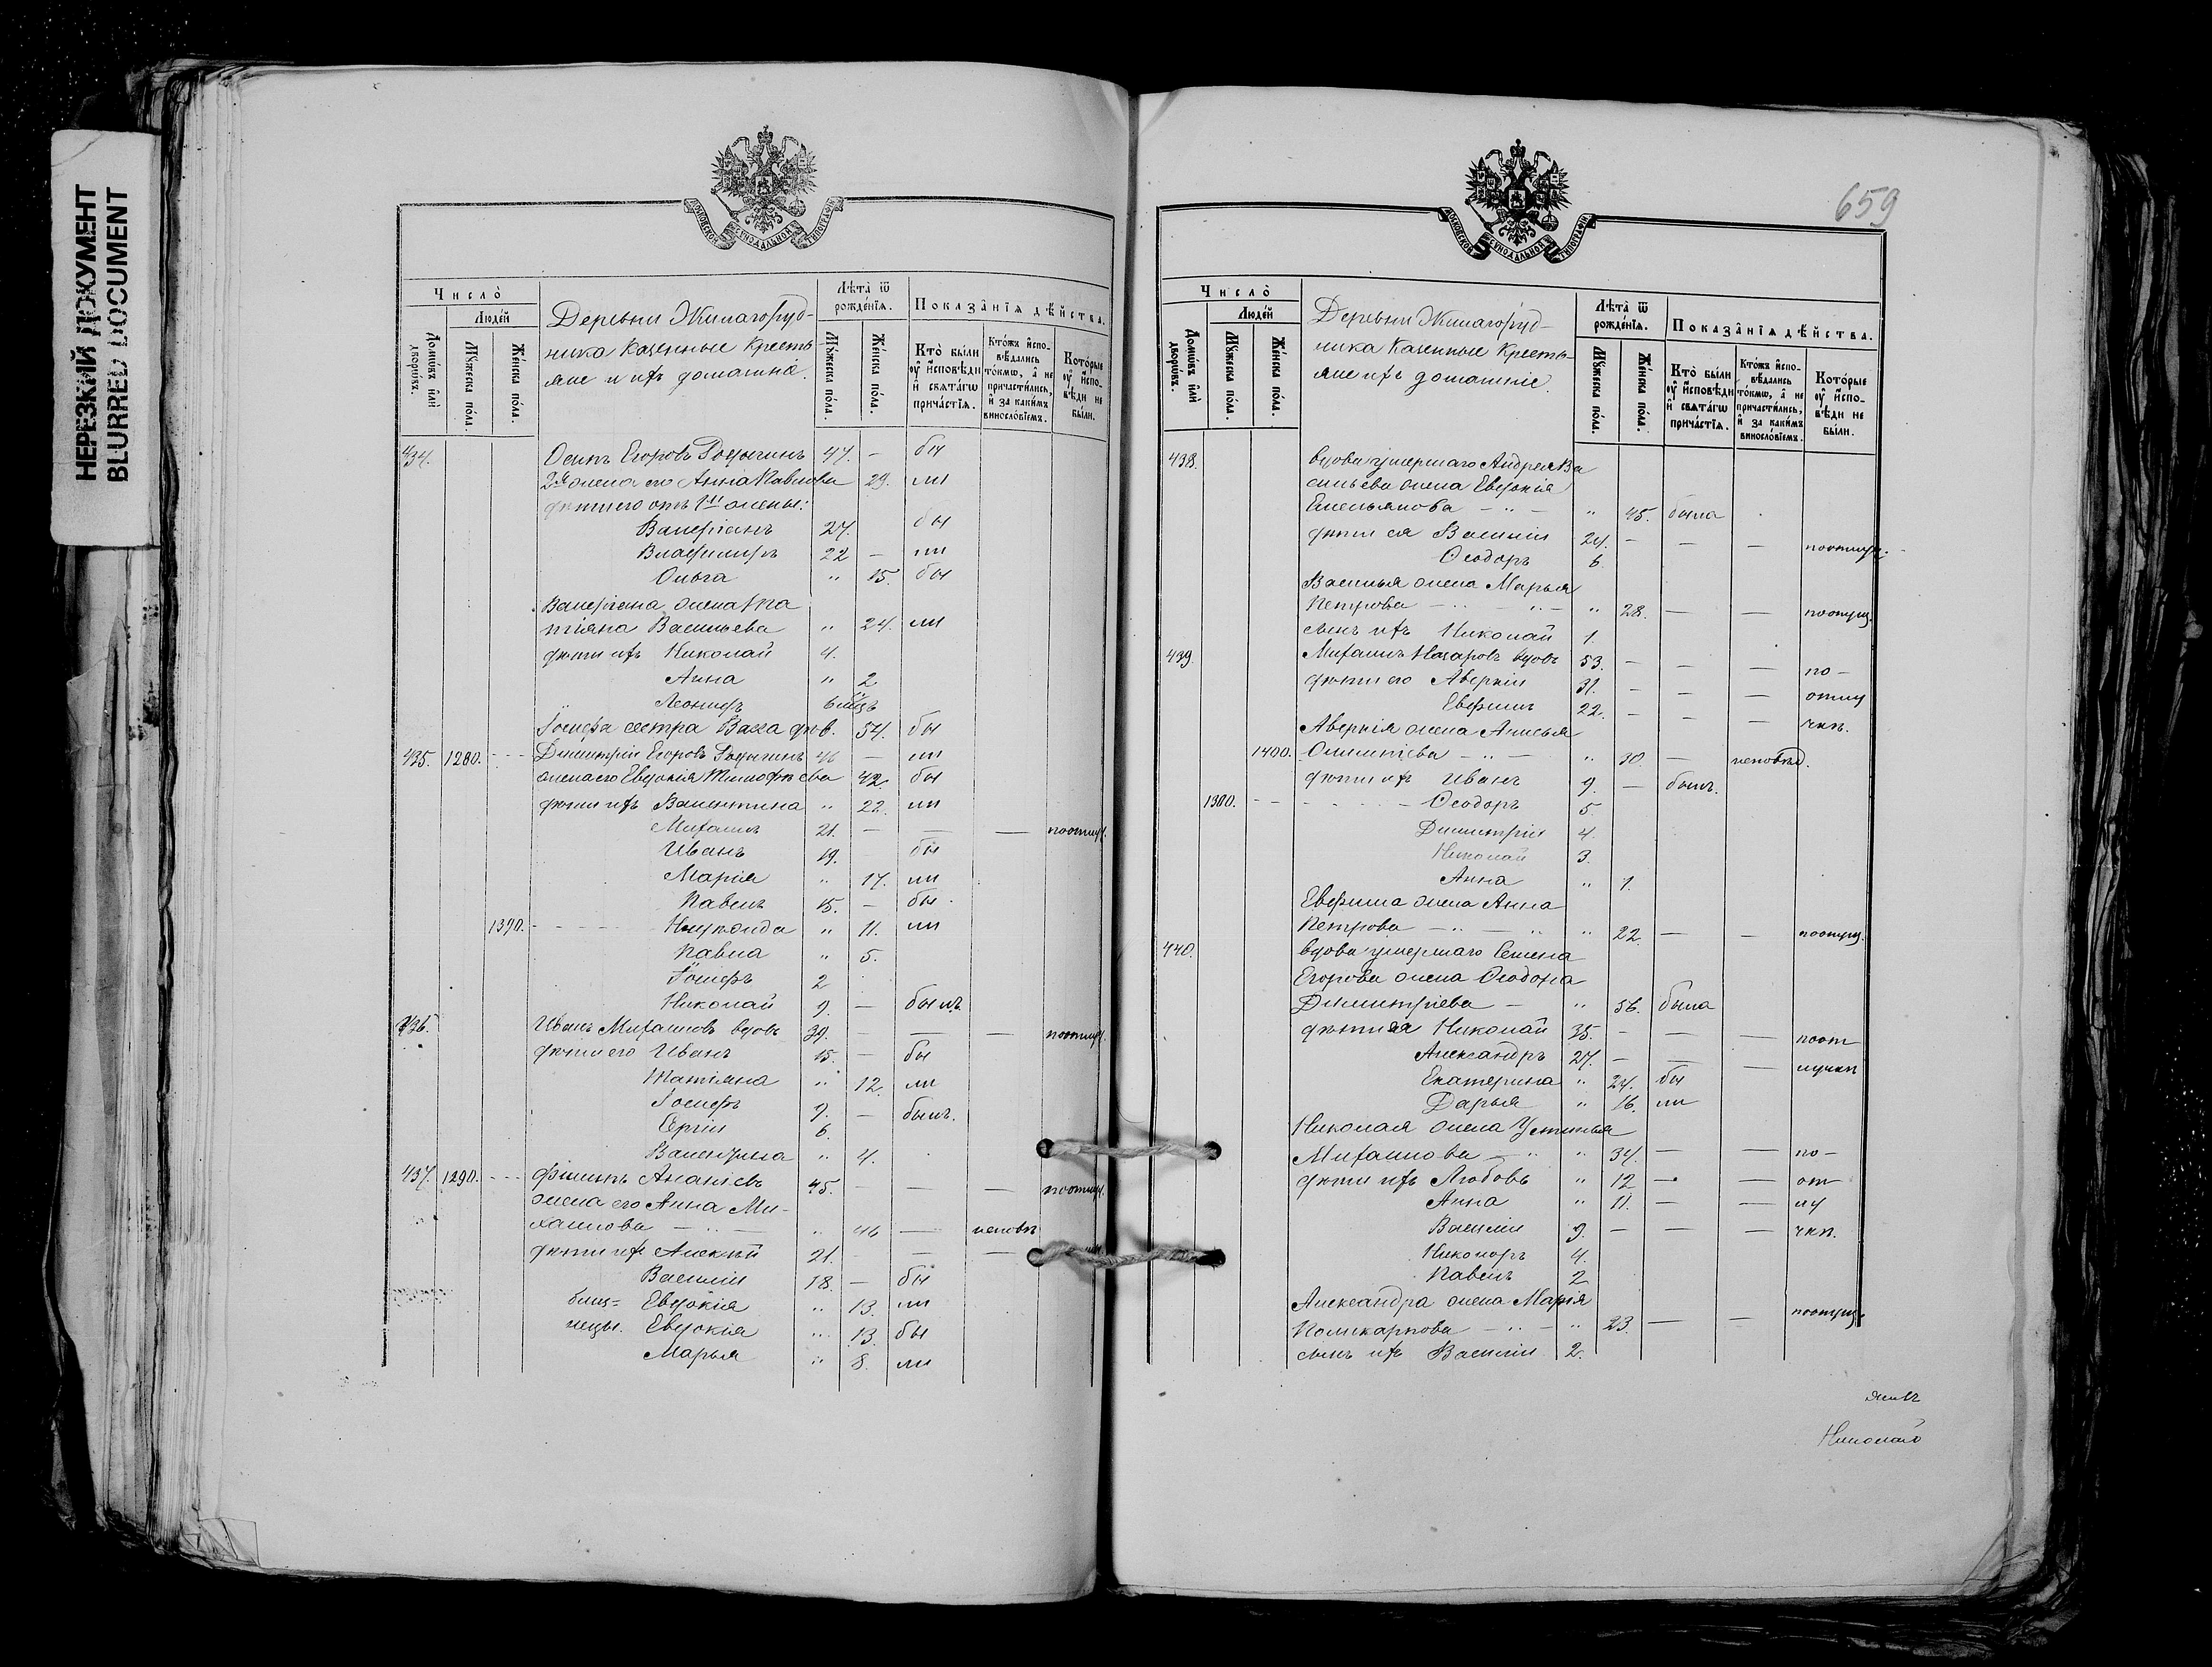 НЕРЕЗКИЙ ДОКУМЕНТ
BLURRED DOCUMENT
МОСКОВСКОЙ СѴНОДАЛЬНОЙ ТИПОГРАФІИ
Число̀
Людей
Домѡвъ или дворѡвъ.
Мꙋжеска пола.
Женска пола.
Деревни Жилаго
ника казенные кресть-
яне и ихъ домашніе.
Лѣта ѿ рожденїѧ.
Мꙋжеска пола.
Женска пола.
Показанїѧ дѣйства.
Кто были ѹ исповѣди и свѧтагѡ причастїѧ.
Ктожъ исповѣдались токмѡ, а не причастились, и за какимъ винословїемъ.
Которые ѹ исповѣди не были.
434. Осипъ Егоровъ 47. — бы
2я жена его Анна Павлова 29. ли
дѣти его отъ 1ой жены:
Валеріанъ 27. бы
Владимиръ 22 — ли
Ольга " 15. бы
Валеріана жена
Васильева " 24. ли
дѣти ихъ Николай 4.
Анна " 2
Леонидъ 6 мѣс
Іосифа сестра Васса дѣв. 54. бы
435. 1280. Димитрій Егоровъ 46 — ли
жена его Евдокія Тимофѣева 42. бы
дѣти ихъ Валентина " 22. ли
Михаилъ 21. — — — поотлуч.
Иванъ 19. бы
Марія " 17. ли
Павелъ 15. — бы
1390. " 11. ли
Павла " 5.
Іосифъ 2
Николай 9. — былъ.
436. Иванъ Михаиловъ вдовъ 39. — — поотлуч.
дѣти его Иванъ 15. — бы
Татіана " 12. ли
Іосифъ 9. — былъ.
Сергій 6.
Валентина " 4.
437. 1290. Филипъ Ананіевъ 45. — — — поотлуч.
жена его Анна Ми-
хаилова " 46 — исповѣ
дѣти ихъ Алексѣй 21. — —
Василій 18. — бы
близ= Евдокія " 13. ли
нецы. Евдокія " 13. бы
Марья " 8. ли
659
МОСКОВСКОЙ СѴНОДАЛЬНОЙ ТИПОГРАФІИ
Число̀
Людей
Домѡвъ или дворѡвъ.
Мꙋжеска пола.
Женска пола.
Деревни Жилаго
ника казенные кресть-
яне ихъ домашніе.
Лѣта ѿ рожденїѧ.
Мꙋжеска пола.
Женска пола.
Показанїѧ дѣйства.
Кто были ѹ исповѣди и свѧтагѡ причастїѧ.
Ктожъ исповѣдались токмѡ, а не причастились, и за какимъ винословїемъ.
Которые ѹ исповѣди не были.
438. вдова умершаго Андрея Ва
сильева жена Евдокія
Емельянова " 45. была
дѣти ея Василій 24. — — — поотлуч.
Ѳеодоръ 6.
Василья жена Марья
Петрова " 28. — — поотлуч.
сынъ ихъ Николай 1.
439. Михаилъ Назаровъ вдовъ 53. — — — по-
дѣти его Аверкій 31. — — — отлу
Ефимъ 22. — — — чкѣ.
Аверкія жена Анисья
1400. " 30. — исповѣд.
дѣти ихъ Иванъ 9. — былъ.
1300. Ѳеодоръ 5.
Димитрій 4.
Николай 3.
Анна " 1.
Ефима жена Анна
Петрова " 22. — — поотлуч.
440. вдова умершаго Семена
Егорова жена
Димитріева — " 56. была
дѣти ея Николай 35. — — — поот
Александръ 27. — — — лучкѣ
Екатерина " 24. бы
Дарья " 16. ли
Николая жена Устинья
Михаилова " 34. — — по-
дѣти ихъ Любовь " 12 — — от
Анна " 11. — — лу
Василій 9. — — — чкѣ.
Никоноръ 4.
Павелъ 2
Александра жена Марія
Поликарпова " 23. — — поотлуч.
сынъ ихъ Василій 2.
Николай